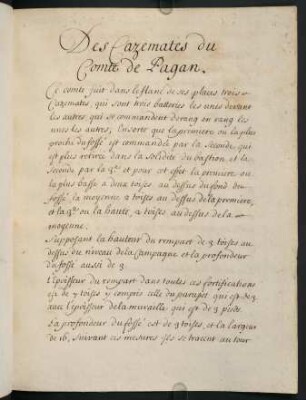 Des Cazemates du
Comte de Pagan.
Ce comte fait dans le flanc de ses places trois
Cazemates, qui sont trois batteries les unes devant
les autres, qui se commandent de rang en rang les
unes les autres, En sorte que la premiere ou la plus
proche du fossé est commandée par la Seconde, qui
est plus retirée dans la solidité du bastion, et la
Seconde par la 3.e et pour cet effet la premiere ou
la plus basse a deux toizes au dessus du fond du
fossé, la moyenne 2 toizes au dessus de la premiere,
et la 3.e ou la haute, 2 toizes au dessus de la
moyenne.
Supposant la hauteur du rempart de 3 toizes au
dessus du niveau de la Campagne et la profondeur
du fossé aussi de 3.
L'épaisseur du rempart dans toutes ces fortifications
est de 7 toizes y compris celle du parapet qui est de 3
avec l'épaisseur de la muraille qui est de 3 pieds.
La profondeur du fossé est de 3 toizes, et la largeur
de 16, suivant ces mesures Ils se tracent au tour